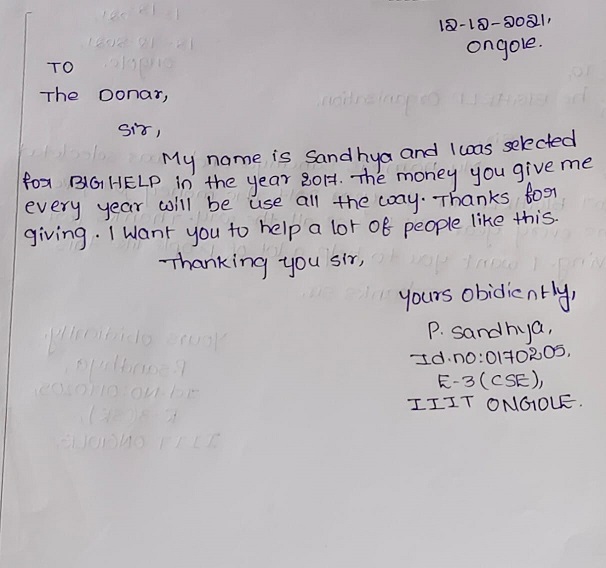 12-12-2021,
Ongole.
TO
The Donar,
Sir,
My name is Sandhya and I was selected
for BIGHELP in the year 2017. The money you give me
every year will be use all the way. Thanks for
giving. I want you to help a lot of people like this.
Thanking you sir,
yours obidiently,
P. Sandhya,
Id.no:0170205,
E-3(CSE),
IIIT ONGOLE.